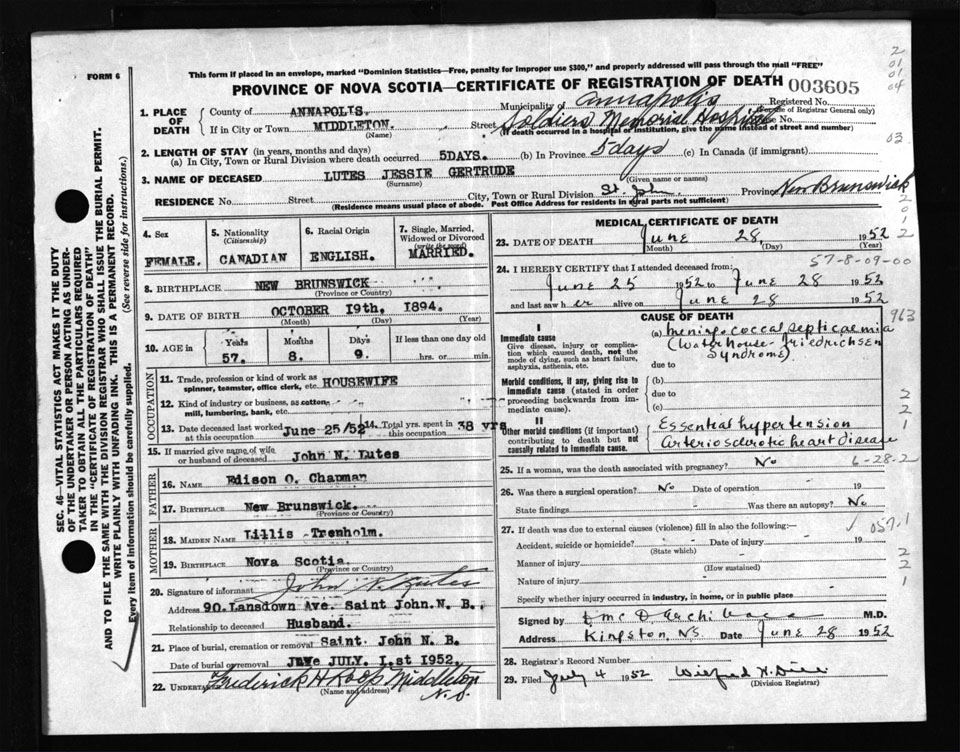 FORM 6
This form if placed in an envelope, marked "Dominion Statistics—Free, penalty for improper use $300," and properly addressed will pass through the mail "FREE"
PROVINCE OF NOVA SCOTIA—CERTIFICATE OF REGISTRATION OF DEATH 003605
2
01
01
04
03
1. PLACE OF DEATH
County of ANNAPOLIS. Municipality of Annapolis Registered No.
(For use of Registrar General only)
If in City or Town MIDDLETON. Street Soldiers Memorial Hospital House No.
(Name) (If death occurred in a hospital or institution, give the name instead of street and number)
2. LENGTH OF STAY (in years, months and days)
(a) In City, Town or Rural Division where death occurred 5DAYS. (b) In Province 5 days (c) In Canada (if immigrant)
3. NAME OF DECEASED LUTES JESSIE GERTRUDE
(Surname) (Given name or names)
RESIDENCE No. Street City, Town or Rural Division St. John Province New Brunswick
(Residence means usual place of abode. Post Office Address for residents in rural parts not sufficient)
SEC. 46—VITAL STATISTICS ACT MAKES IT THE DUTY
OF THE UNDERTAKER OR PERSON ACTING AS UNDER-
TAKER TO OBTAIN ALL THE PARTICULARS REQUIRED
IN THE "CERTIFICATE OF REGISTRATION OF DEATH"
AND TO FILE THE SAME WITH THE DIVISION REGISTRAR WHO SHALL ISSUE THE BURIAL PERMIT.
WRITE PLAINLY WITH UNFADING INK. THIS IS A PERMANENT RECORD.
Every item of information should be carefully supplied. (See reverse side for instructions.)
4. Sex FEMALE.
5. Nationality (Citizenship) CANADIAN
6. Racial Origin ENGLISH.
7. Single, Married, Widowed or Divorced (write the word) MARRIED.
8. BIRTHPLACE NEW BRUNSWICK
(Province or Country)
9. DATE OF BIRTH OCTOBER 19th, 1894.
(Month) (Day) (Year)
10. AGE in Years Months Days If less than one day old
57. 8. 9. hrs. or min.
OCCUPATION
11. Trade, profession or kind of work as spinner, teamster, office clerk, etc. HOUSEWIFE
12. Kind of industry or business, as cotton mill, lumbering, bank, etc.
13. Date deceased last worked at this occupation June 25/52 14. Total yrs. spent in this occupation 38 yrs
15. If married give name of wife or husband of deceased John N. Lutes
FATHER
16. NAME Edison O. Chapman
17. BIRTHPLACE New Brunswick.
(Province or Country)
MOTHER
18. MAIDEN NAME Lillis Trenholm.
19. BIRTHPLACE Nova Scotia.
(Province or Country)
20. Signature of informant John N. Lutes
Address 90. Lansdown Ave. Saint John. N. B.
Relationship to deceased Husband.
21. Place of burial, cremation or removal Saint. John N. B.
Date of burial or removal JULY. I.st 1952.
22. UNDERTAKER Frederick H Roop Middleton N.S.
(Name and address)
MEDICAL CERTIFICATE OF DEATH
2
0
1
2
23. DATE OF DEATH June 28 1952
(Month) (Day) (Year)
57-8-09-00
24. I HEREBY CERTIFY that I attended deceased from:
June 25 1952 to June 28 1952
and last saw her alive on June 28 1952
CAUSE OF DEATH
963
I
Immediate cause
Give disease, injury or complication which caused death, not the mode of dying, such as heart failure, asphyxia, asthenia, etc.
(a) Meningococcal septicaemia
(Waterhouse-Friedrichsen
Syndrome)
due to
Morbid conditions, if any, giving rise to immediate cause (stated in order proceeding backwards from immediate cause).
(b)
due to
(c)
2
2
1
II
Other morbid conditions (if important) contributing to death but not causally related to immediate cause.
Essential hypertension
Arteriosclerotic heart disease
6-28-2
25. If a woman, was the death associated with pregnancy? No
26. Was there a surgical operation? No Date of operation 19
State findings Was there an autopsy? No
057.1
27. If death was due to external causes (violence) fill in also the following:
Accident, suicide or homicide? Date of injury 19
(State which)
Manner of injury
(How sustained)
Nature of injury
2
2
1
Specify whether injury occurred in industry, in home, or in public place
Signed by M.D.
Address Kingston, NS. Date June 28 1952
28. Registrar's Record Number
29. Filed July 4 1952 Wilfred
(Division Registrar)